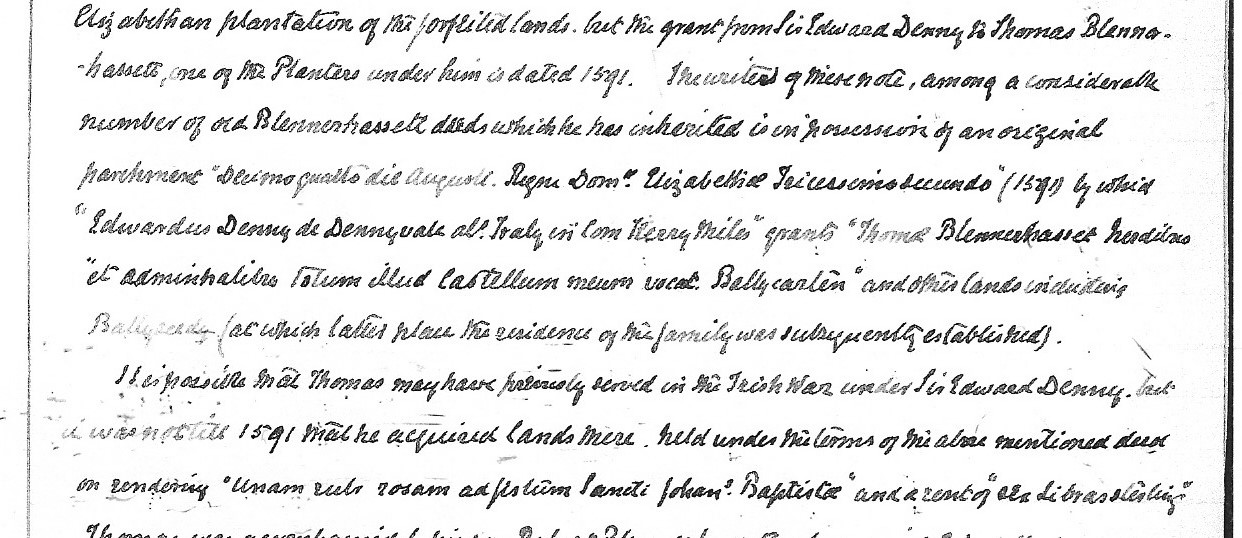 Elizabethan plantation of the forfeited lands. but the grant from Sir Edward Denny to Thomas Blenner-
-hassett, one of the Planters under him is dated 1591. The writer of these note, among a considerable
number of old Blennerhassett deeds which he has inherited is in possession of an original
parchment "Decimo quarto die Augusti. Regni Dom.ͤ Elizabethæ Tricessimo secundo" (1591) by which
"Edwardus Denny de Dennyvale als. Traly in Com Kerry Miles" grants "Thomæ Blennerhasset heredibus
"et administratibus totum illud Castellum meum vocat. Ballycarten" and other lands including
Ballyseedy (at which latter place the residence of the family was subsequently established).
It is possible that Thomas may have previously served in the Irish War under Sir Edward Denny. but
it was not till 1591 that he acquired lands there. held under the terms of the above mentioned deed
on rendering "unam rubr rosam ad festum Sancti Johan.ˢ Baptistæ" and a rent of "sex Libras sterling"
Thomas